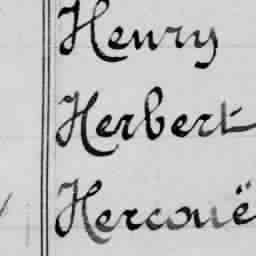 Henry
Herbert
Hercouë